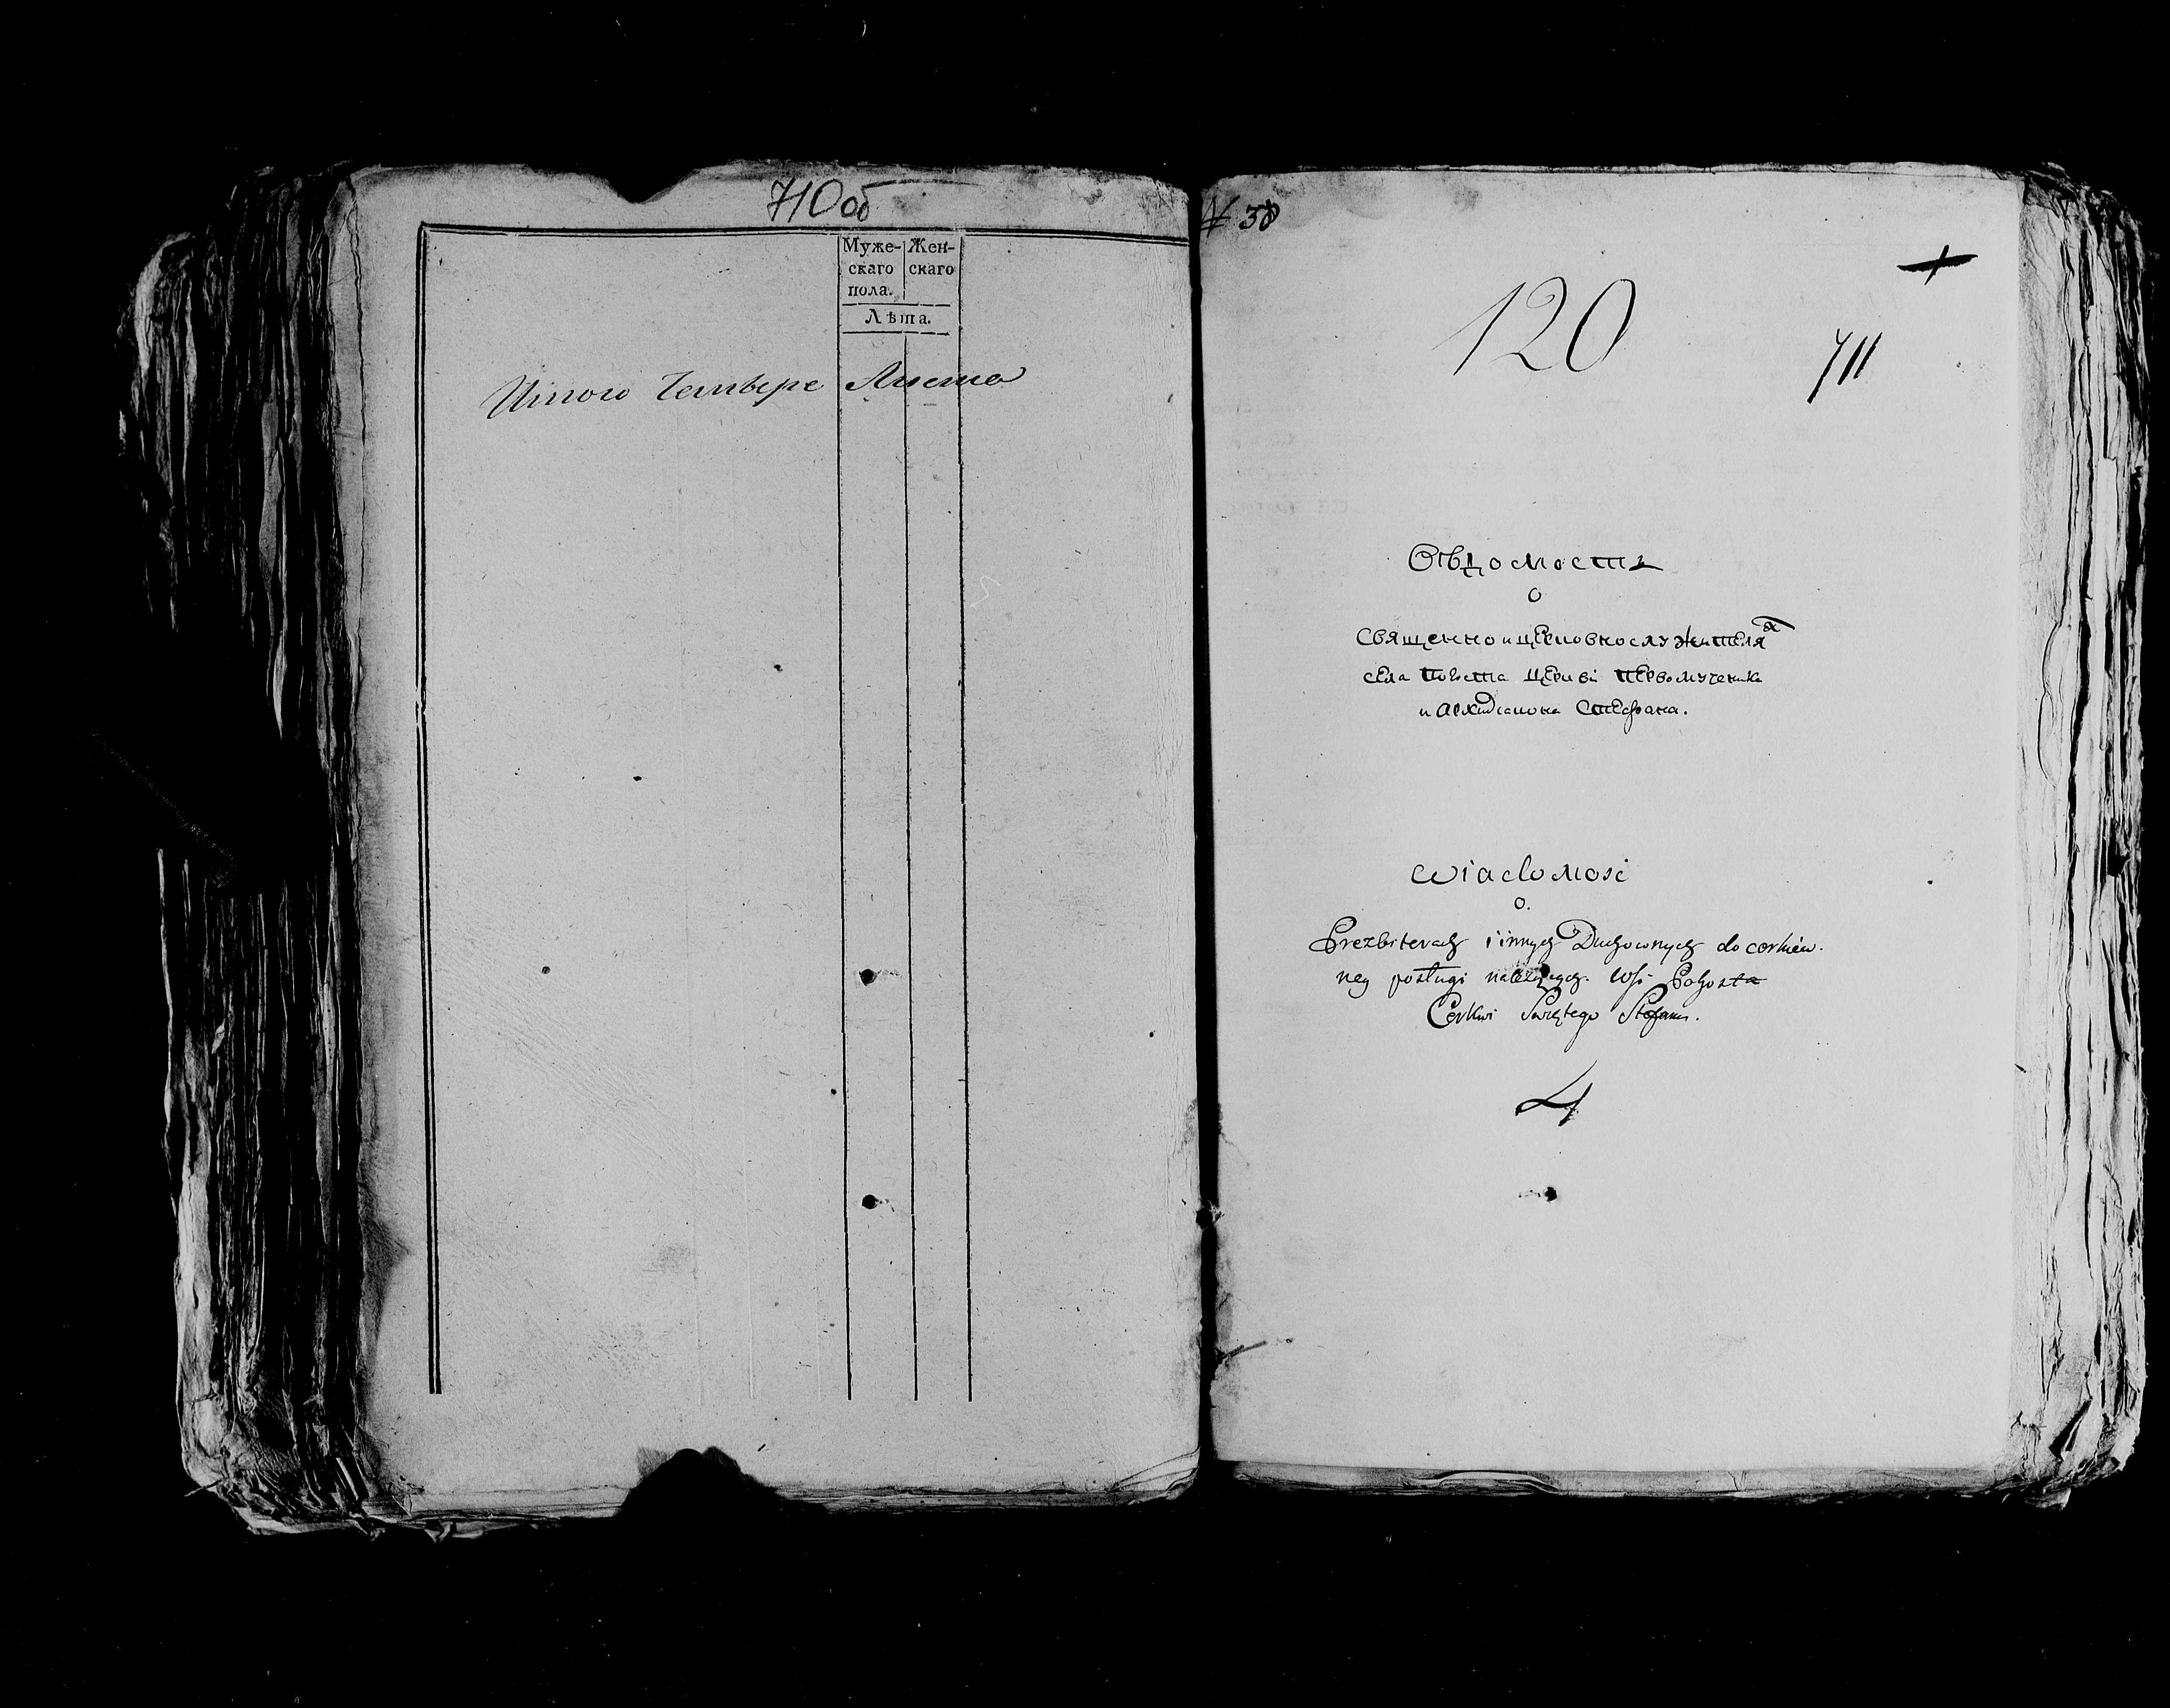 710 об
Муже- Жен-
скаго скаго
пола.
Лѣта.
Итого Четыре Листа
№ 38
120
711
Ѡвѣдомость
о
священно и церковнослужителях
села Погоста церкви первомученика
и архидиакона Стефана.
Wiadomość
o.
Prezbiterach i innych Duchownych do cerkiew.
ney posługi należących. Wsi Pohosta
Cerkwi Swiętego Stefana.
4